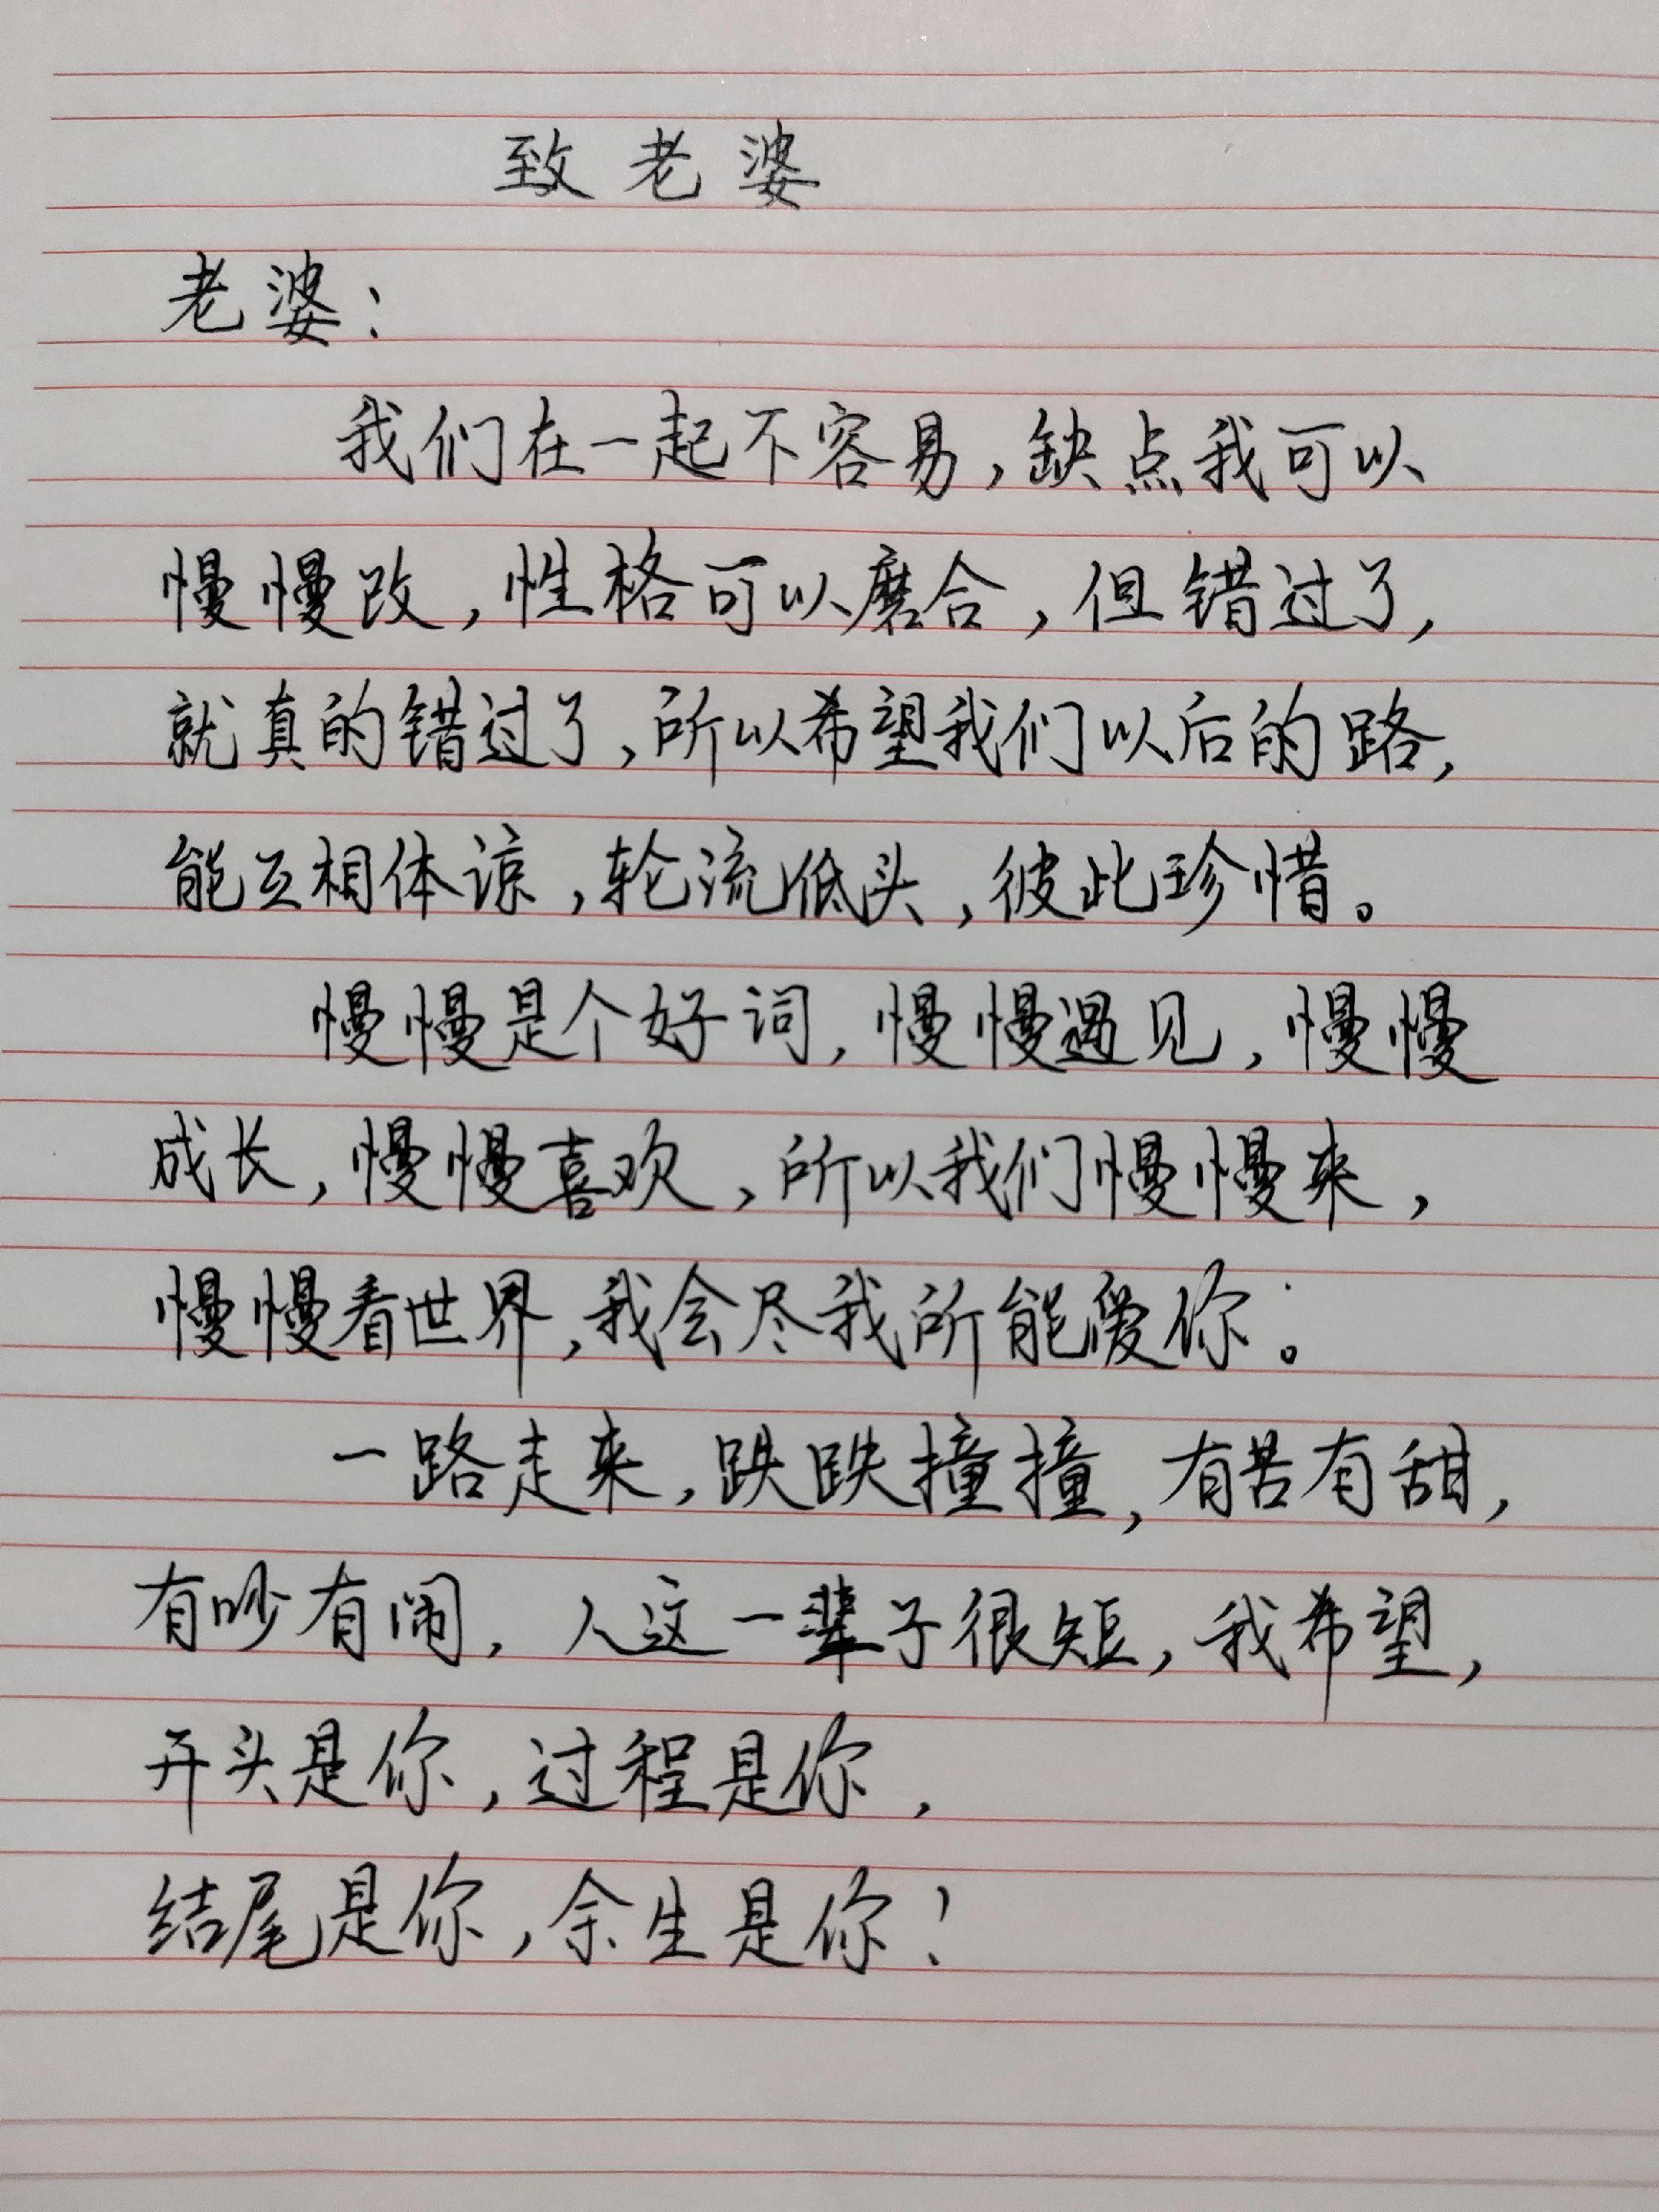 致老婆
老婆：
我们在一起不容易，缺点我可以
慢慢改，性格可以磨合，但错过了，
就真的错过了，所以希望我们以后的路，
能互相体谅，轮流低头，彼此珍惜。
慢慢是个好词，慢慢遇见，慢慢
成长，慢慢喜欢，所以我们慢慢来，
慢慢看世界，我会尽我所能爱你。
一路走来，跌跌撞撞，有苦有甜，
有吵有闹，人这一辈子很短，我希望，
开头是你，过程是你，
结尾是你，余生是你！